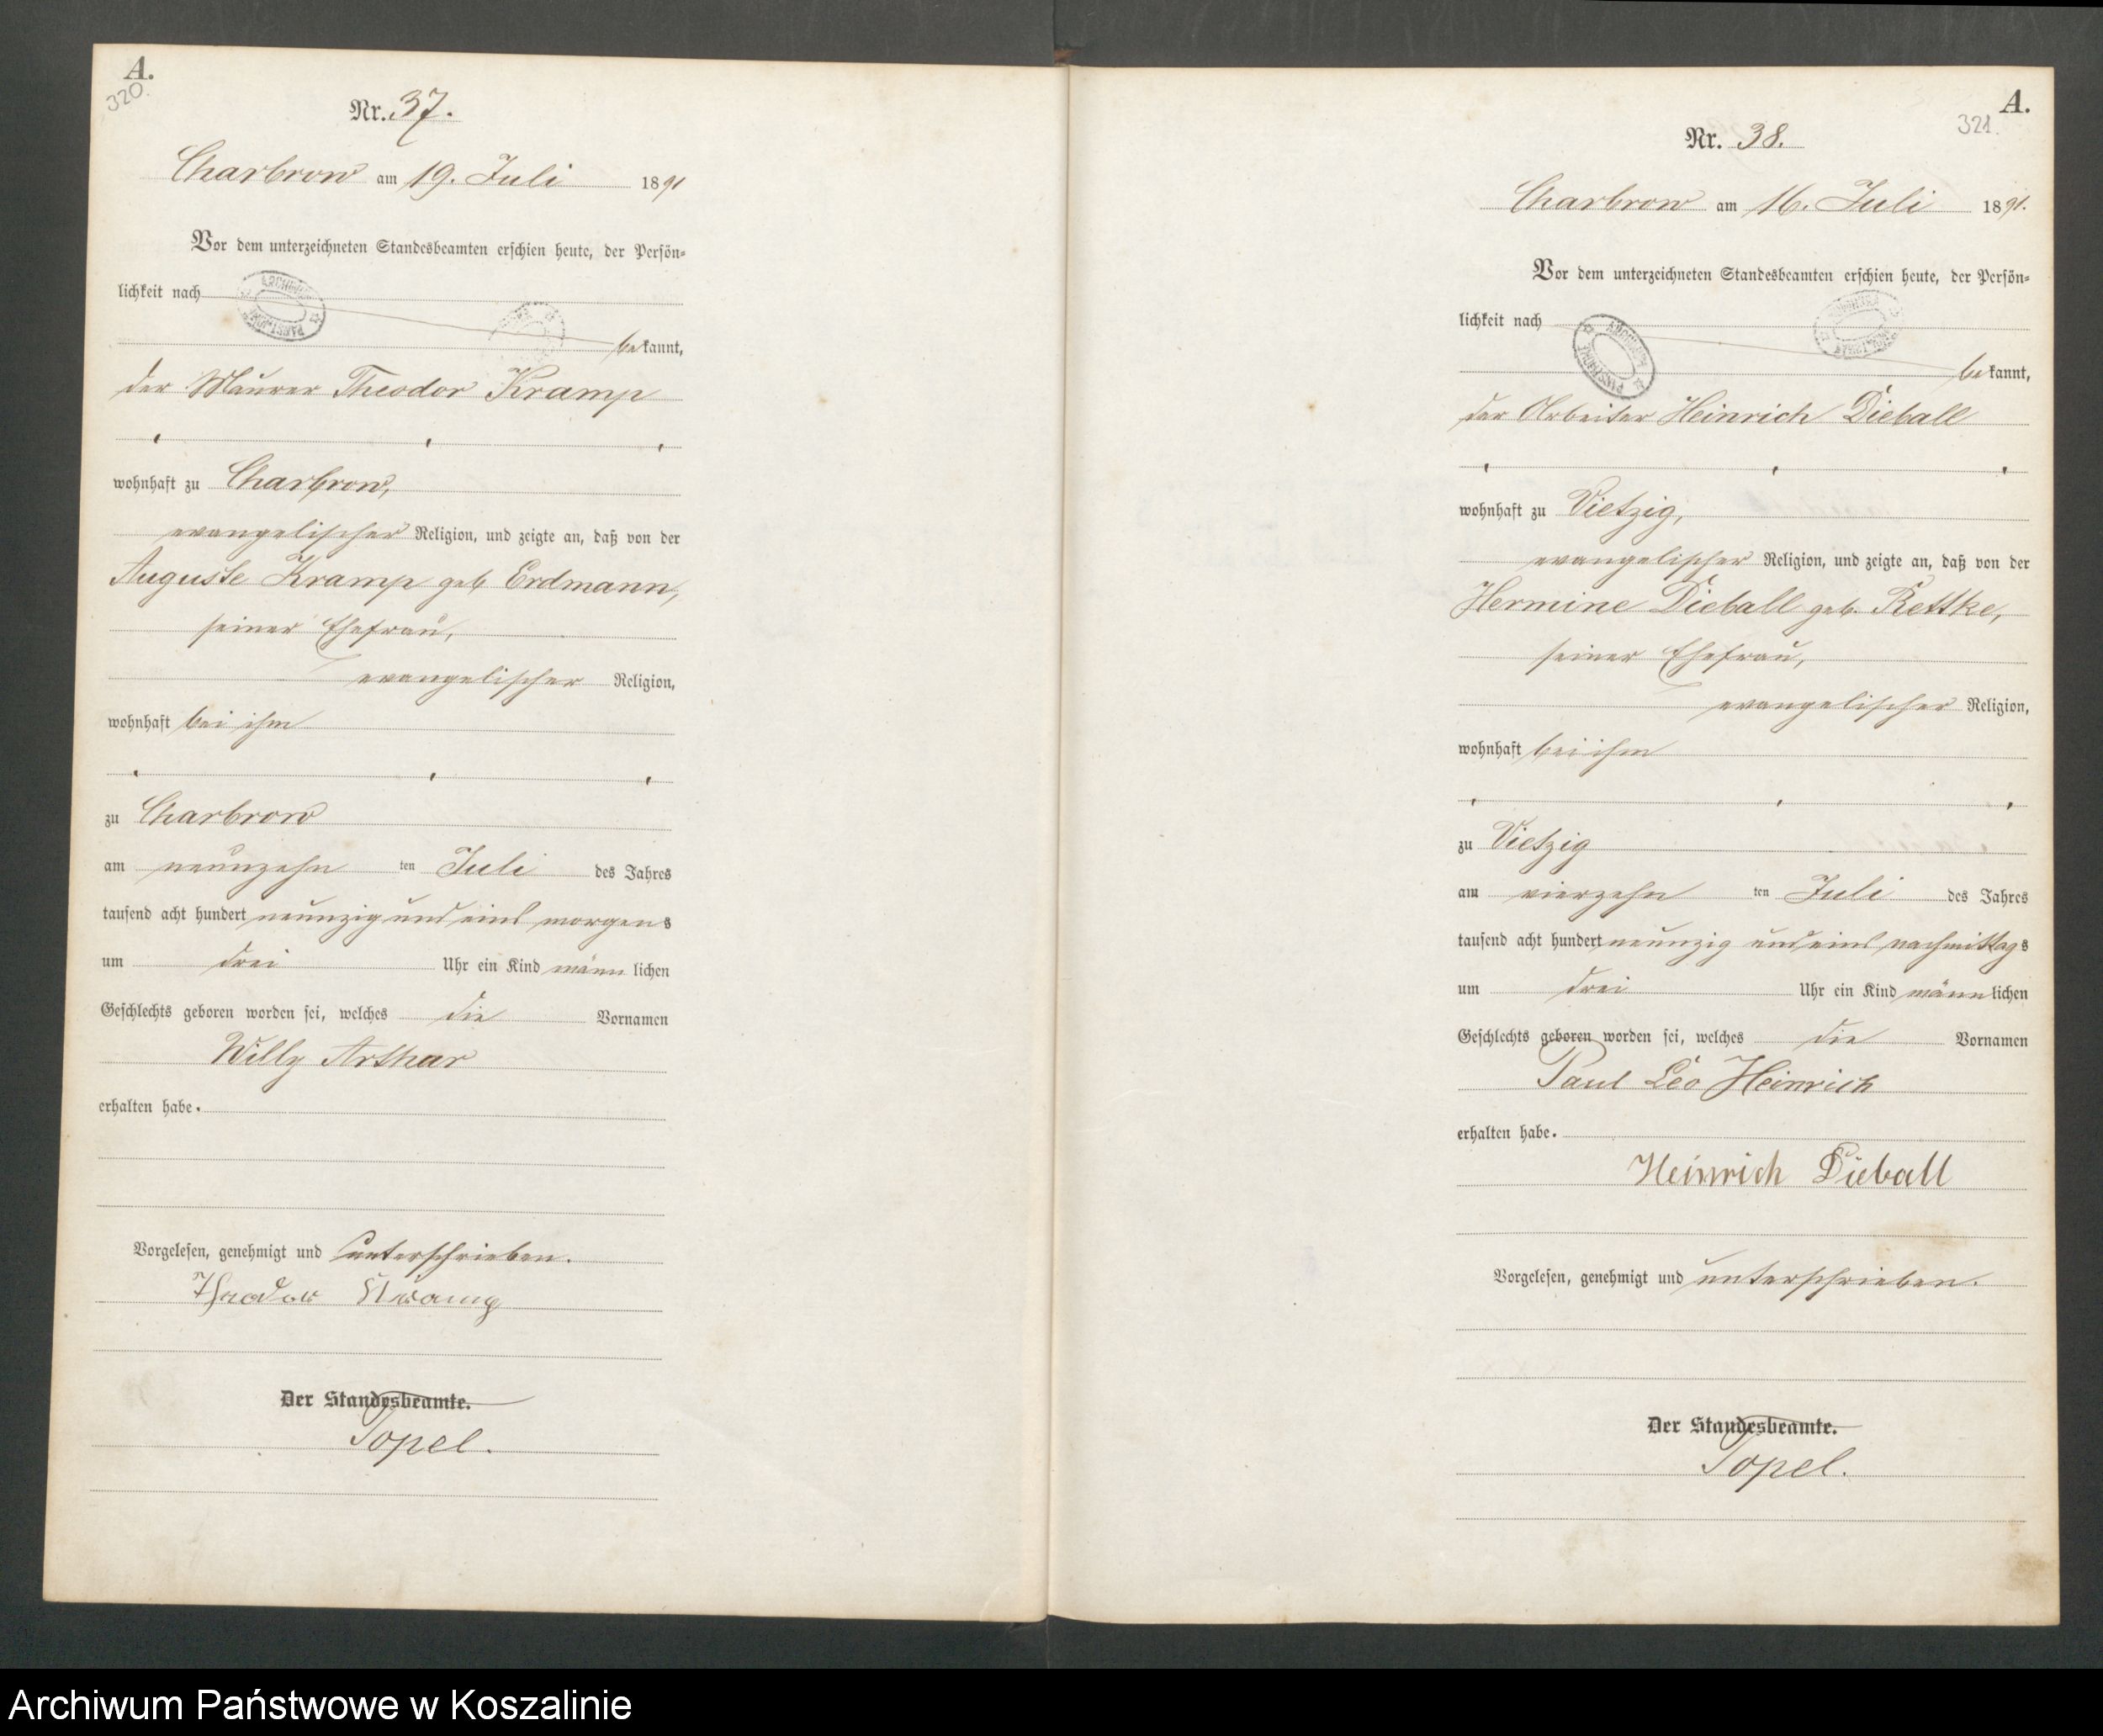 A.
320.
Nr. 37.
Charbrow am 19. Juli 1891
Vor dem unterzeichneten Standesbeamten erschien heute, der Persön-
lichkeit nach
bekannt,
der Maurer Theodor Kramp
wohnhaft zu Charbrow,
evangelischer Religion, und zeigte an, daß von der
Auguste Kramp geb Erdmann,
seiner Ehefrau,
evangelischer Religion,
wohnhaft bei ihm
zu Charbrow
am neunzehn ten Juli des Jahres
tausend acht hundert neunzig und eins morgens
um drei Uhr ein Kind männlichen
Geschlechts geboren worden sei, welches die Vornamen
Willy Arthur
erhalten habe.
Vorgelesen, genehmigt und unterschrieben.
Theodor Kramp
Der Standesbeamte.
Topel.
A.
321.
Nr. 38.
Charbrow am 16. Juli 1891.
Vor dem unterzeichneten Standesbeamten erschien heute, der Persön-
lichkeit nach
bekannt,
der Arbeiter Heinrich Dieball
wohnhaft zu Vietzig,
evangelischer Religion, und zeigte an, daß von der
Hermine Dieball geb. Rettke,
seiner Ehefrau,
evangelischer Religion,
wohnhaft bei ihm
zu Vietzig
am vierzehn ten Juli des Jahres
tausend acht hundert neunzig und eins nachmittags
um drei Uhr ein Kind männlichen
Geschlechts geboren worden sei, welches die Vornamen
Paul Leo Heinrich
erhalten habe.
Heinrich Dieball
Vorgelesen, genehmigt und unterschrieben.
Der Standesbeamte.
Topel.
Archiwum Państwowe w Koszalinie